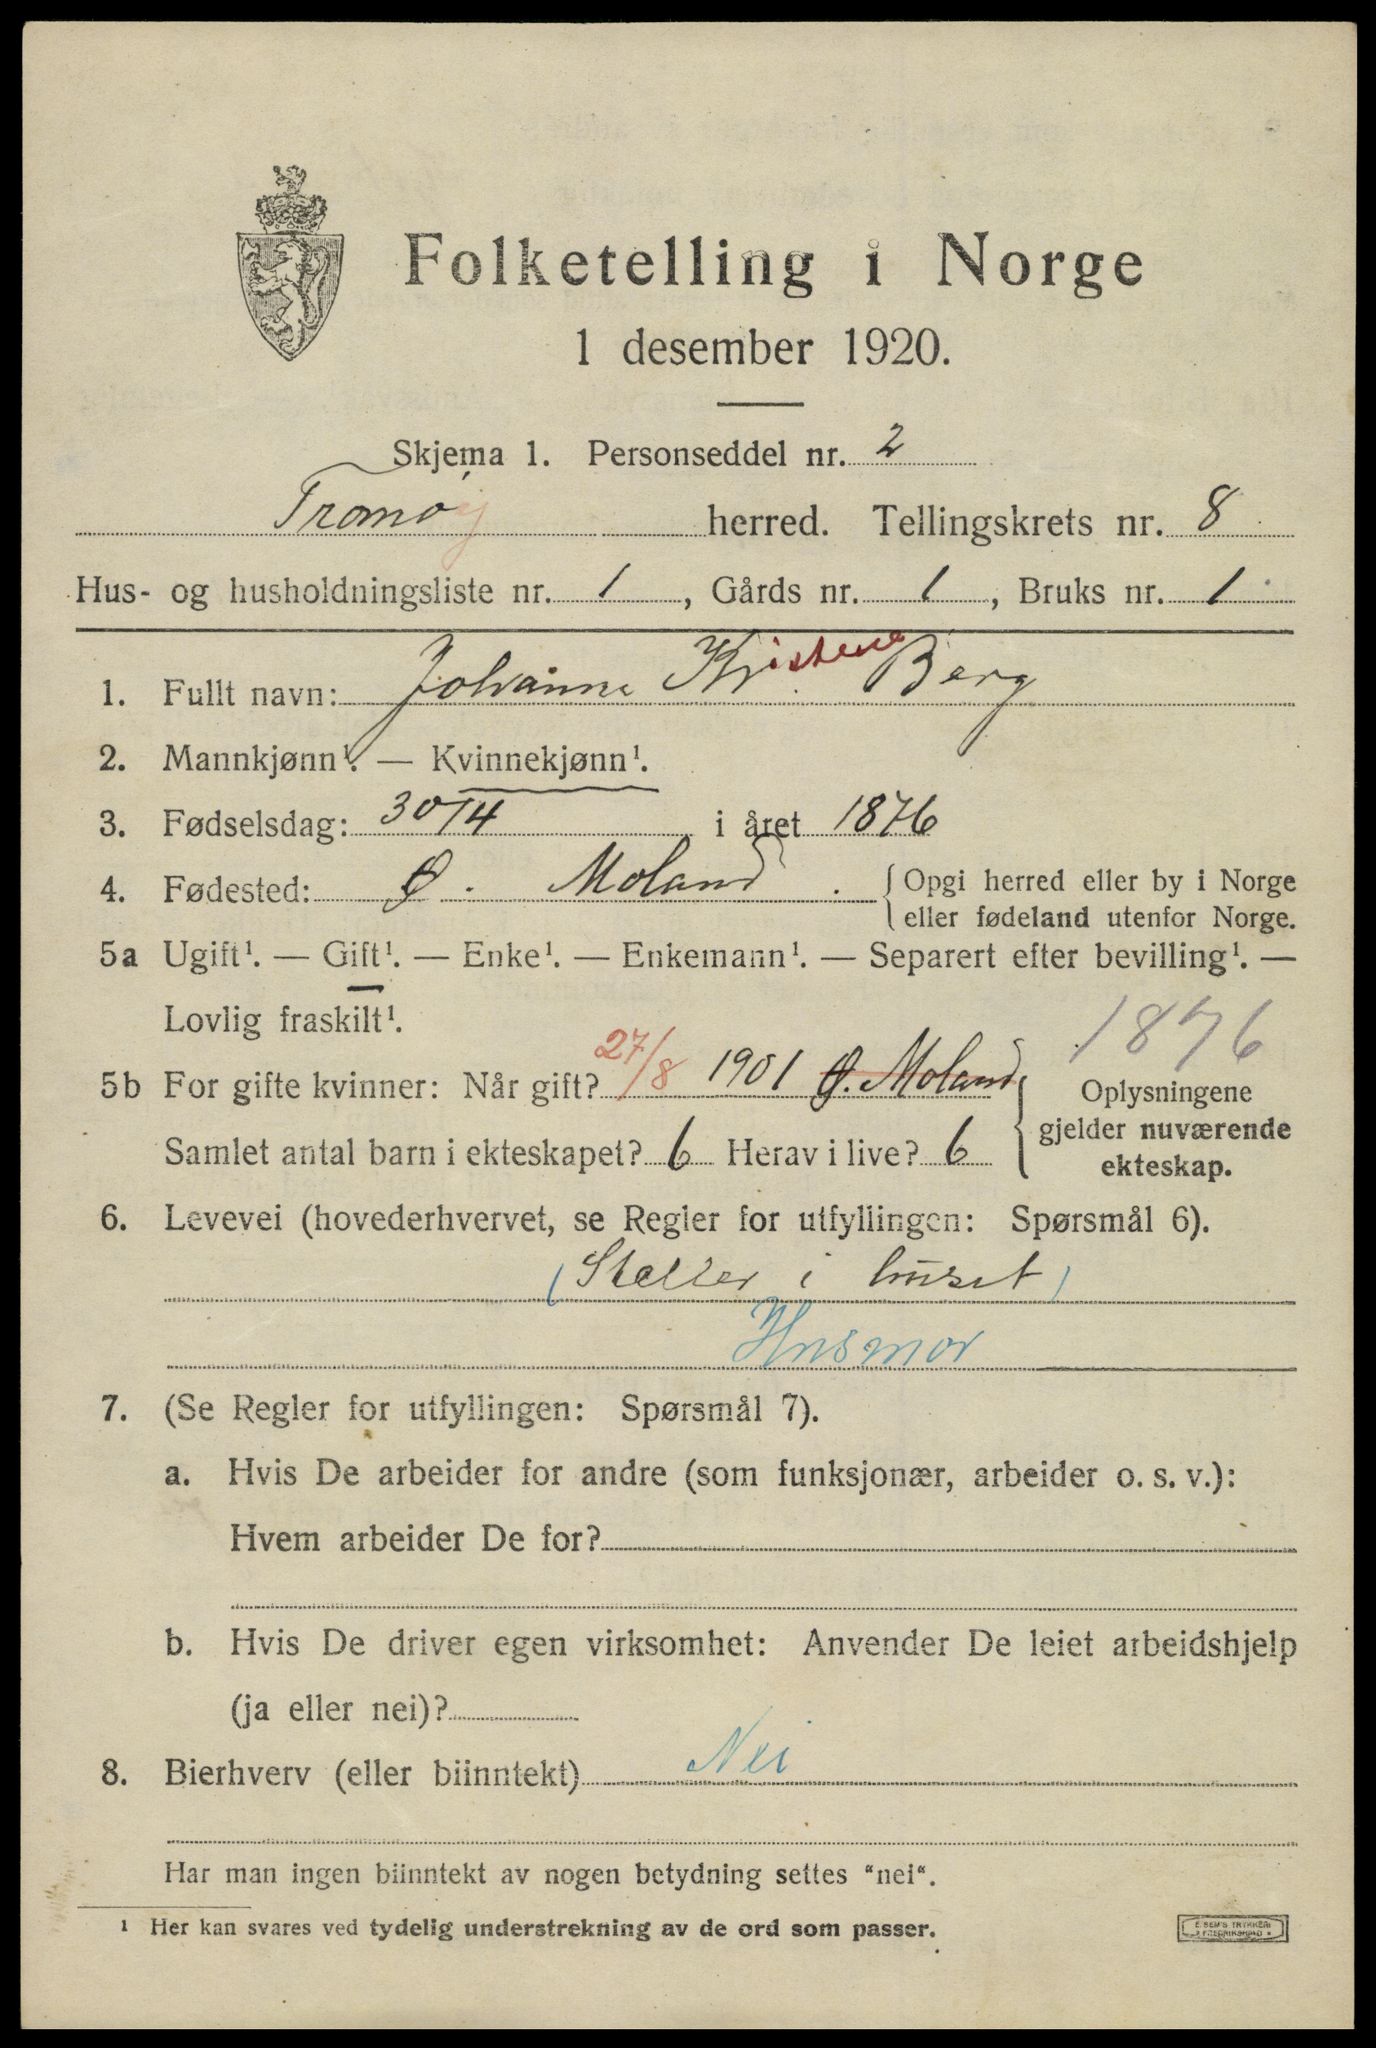 Folketelling i Norge
1 desember 1920.
Skjema 1. Personseddel nr. 2
Tromøy herred. Tellingskrets nr. 8
Hus- og husholdningsliste nr. 1, Gårds nr. 1, Bruks nr. 1
1. Fullt navn: Johanne Kristene Berg
2. Mannkjønn¹. — Kvinnekjønn¹.
3. Fødselsdag: 30/4 i året 1876
4. Fødested: Ø. Moland. { Opgi herred eller by i Norge
eller fødeland utenfor Norge.
5a Ugift¹. — Gift¹. — Enke¹. — Enkemann¹. — Separert efter bevilling¹. —
Lovlig fraskilt¹.
1876
5b For gifte kvinner: Når gift? 27/8 1901 Ø. Moland
Samlet antal barn i ekteskapet? 6 Herav i live? 6
{ Oplysningene
gjelder nuværende
ekteskap.
6. Levevei (hovederhvervet, se Regler for utfyllingen: Spørsmål 6).
(Steller i huset)
Husmor
7. (Se Regler for utfyllingen: Spørsmål 7).
a. Hvis De arbeider for andre (som funksjonær, arbeider o. s. v.):
Hvem arbeider De for?
b. Hvis De driver egen virksomhet: Anvender De leiet arbeidshjelp
(ja eller nei)?
8. Bierhverv (eller biinntekt) Nei
Har man ingen biinntekt av nogen betydning settes "nei".
¹ Her kan svares ved tydelig understrekning av de ord som passer.